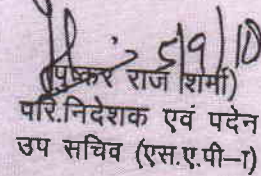 5/9/18
(पुष्कर राज शर्मा)
परि.निदेशक एवं पदेन
उप सचिव (एस.ए.पी-I)